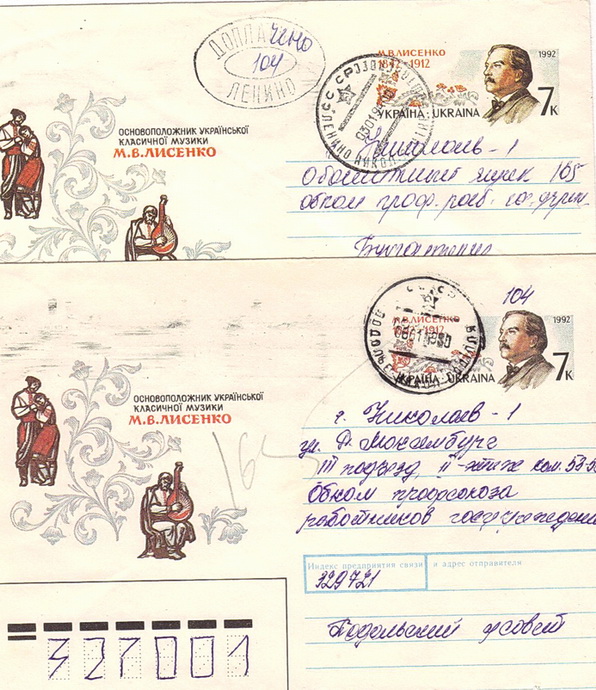 ДОПЛАчено
104
ЛЕНИНО
М.В.ЛИСЕНКО
1842-1912
1992
УКРАЇНА·UKRAINA
7к
ОСНОВОПОЛОЖНИК УКРАЇНСЬКОЇ
КЛАСИЧНОЇ МУЗИКИ
М.В.ЛИСЕНКО
Николаев-1
165
обком проф. раб.
104
М.В.ЛИСЕНКО
1842-1912
1992
УКРАЇНА·UKRAINA
7к
ОСНОВОПОЛОЖНИК УКРАЇНСЬКОЇ
КЛАСИЧНОЇ МУЗИКИ
М.В.ЛИСЕНКО
165
г. Николаев-1
ул. Р. Люксембург
III подъезд II-этаж ком.
Обком профсоюза
работников госучреждени
Индекс предприятия связи и адрес отправителя
329721
Подольский
327001